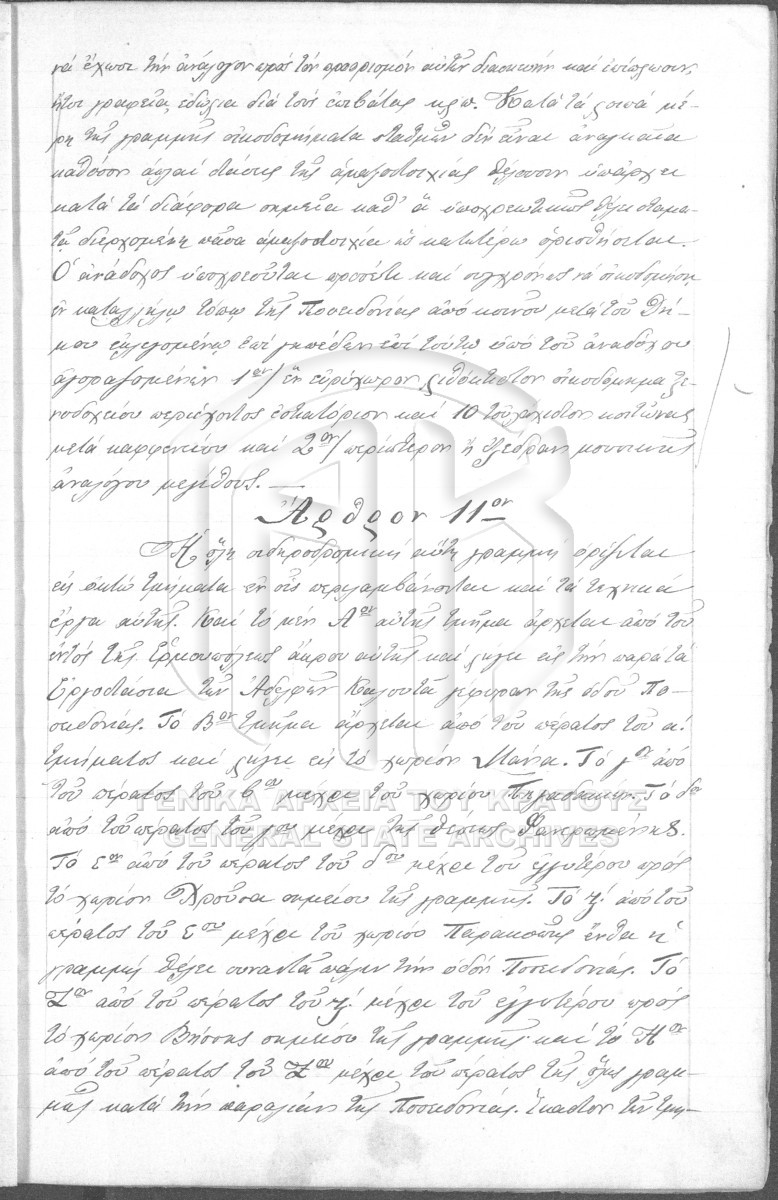 νά ἔχωσι τήν ἀνάλογον πρός τόν προορισμόν αὐτῶν διασκευήν καί ἐπίπλωσιν,
ἤτοι γραφεῖα, ἑδώλια διά τούς ἐπιβάτας κλπ. Κατά τά λοιπά μέ-
ρη τῆς γραμμῆς οἰκοδομήματα σταθμῶν δέν εἶναι ἀναγκαῖα
καθόσον ἁπλαῖ στάσεις τῆς ἁμαξοστοιχίας θέλουσιν ὑπάρχει
κατά τά διάφορα σημεῖα καθ' ἅ ὑποχρεωτικῶς θέλει σταμα-
τᾷ διερχομένη πᾶσα ἁμαξοστοιχία ὡς κατωτέρω ὁρισθήσεται.
Ὁ ἀνάδοχος ὑποχρεοῦται προσέτι καί συγχρόνως νά οἰκοδομήσῃ
ἐν καταλλήλῳ τόπῳ τῆς Ποσειδωνίας ἀπό κοινοῦ μετά τοῦ Δή-
μου ἐκλεγομένῳ ἐπί γηπέδων ἐπί τούτῳ ὑπό τοῦ ἀναδόχου
ἀγορασομένων 1ον/ ἕν εὐρύχωρον λιθόκτιστον οἰκοδόμημα ξε-
νοδοχείου περιέχοντος ἑστιατόριον καί 10 τοὐλάχιστον κοιτῶνας
μετά καφφενείου καί 2ον/ περίπτερον ἤ ἐξέδραν μουσικῆς
ἀναλόγου μεγέθους. —
Ἄρθρον 11ον
Ἡ ὅλη σιδηροδρομική αὕτη γραμμή ὁρίζεται
εἰς ὀκτώ τμήματα ἐν οἷς περιλαμβάνονται καί τά τεχνικά
ἔργα αὐτῆς. Καί τό μέν Αον αὐτῆς τμῆμα ἄρχεται ἀπό τοῦ
ἐντός τῆς Ἑρμουπόλεως ἄκρου αὐτῆς καί λήγει εἰς τήν παρά τά
Ἐργοστάσια τῶν Ἀδελφῶν Καλουτᾶ γέφυραν τῆς ὁδοῦ Πο-
σειδωνίας. Τό Βον τμῆμα ἄρχεται ἀπό τοῦ πέρατος τοῦ α!
τμήματος καί λήγει εἰς τό χωρίον Μάννα. Τό γον ἀπό
τοῦ πέρατος τοῦ βου μέχρι τοῦ χωρίου Πηγαδακίων. Τό δον
ἀπό τοῦ πέρατος τοῦ γου μέχρι τῆς θέσεως Φανερωμένης.
Τό εον ἀπό τοῦ πέρατος τοῦ δου μέχρι τοῦ ἐγγυτέρου πρός
τό χωρίον Χροῦσα σημείου τῆς γραμμῆς. Τό ϛ! ἀπό τοῦ
πέρατος τοῦ εου μέχρι τοῦ χωρίου Παρακοπῆς ἔνθα ἡ
γραμμή θέλει συναντᾷ πάλιν τήν ὁδόν Ποσειδωνίας. Τό
Ζον ἀπό τοῦ πέρατος τοῦ ϛ! μέχρι τοῦ ἐγγυτέρου πρός
τό χωρίον Βήσσης σημείου τῆς γραμμῆς καί τό Ηον
ἀπό τοῦ πέρατος τοῦ Ζου μέχρι τοῦ πέρατος τῆς ὅλης γραμ-
μῆς κατά τήν παραλίαν τῆς Ποσειδωνίας. Ἕκαστον τῶν τμη-
ΓΕΝΙΚΑ ΑΡΧΕΙΑ ΤΟΥ ΚΡΑΤΟΥΣ
GENERAL STATE ARCHIVES